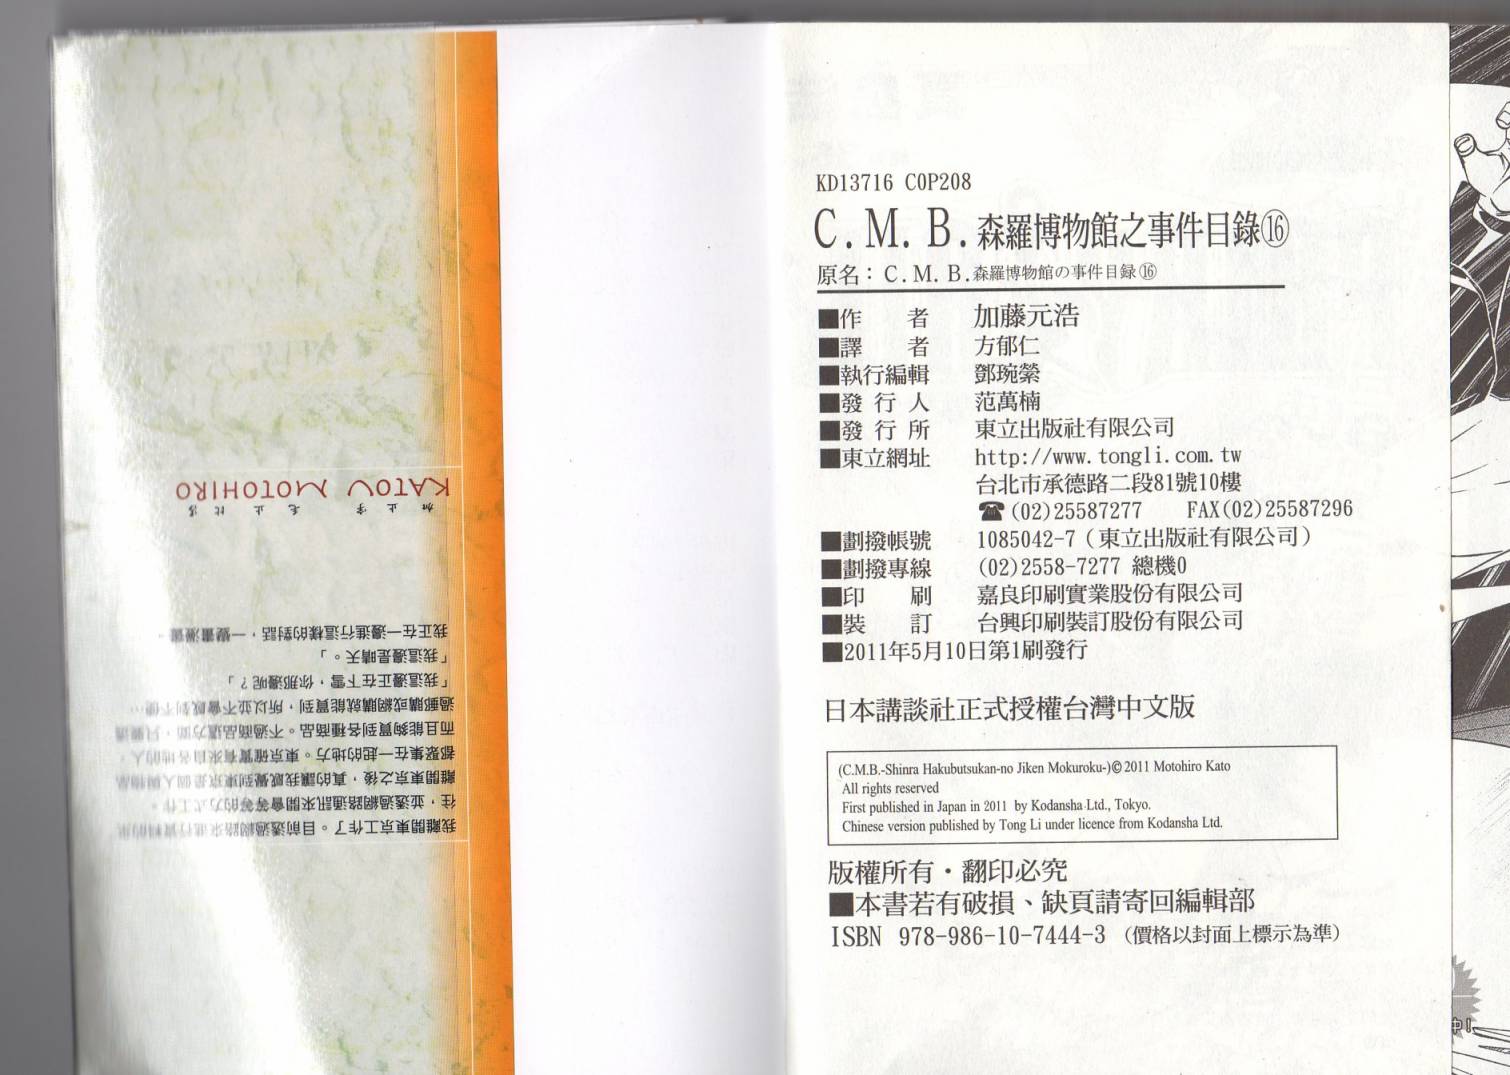 KD13716 C0P208
C.M.B.森羅博物館之事件目錄⑯
原名：C.M.B.森羅博物館の事件目録⑯
■作 者 加藤元浩
■譯 者 方郁仁
■執行編輯 鄧琬縈
■發 行 人 范萬楠
■發 行 所 東立出版社有限公司
■東立網址 http://www.tongli.com.tw
台北市承德路二段81號10樓
☎(02)25587277 FAX(02)25587296
■劃撥帳號 1085042-7（東立出版社有限公司）
■劃撥專線 (02)2558-7277 總機0
■印 刷 嘉良印刷實業股份有限公司
■裝 訂 台興印刷裝訂股份有限公司
■2011年5月10日第1刷發行
日本講談社正式授權台灣中文版
(C.M.B.-Shinra Hakubutsukan-no Jiken Mokuroku-)©2011 Motohiro Kato
All rights reserved
First published in Japan in 2011 by Kodansha Ltd., Tokyo.
Chinese version published by Tong Li under licence from Kodansha Ltd.
版權所有・翻印必究
■本書若有破損、缺頁請寄回編輯部
ISBN 978-986-10-7444-3（價格以封面上標示為準）
我離開東京工作了。目前透過網路來進行資料的
往，並透過網路通訊來開會等等的方式工作。
離開東京之後，真的讓我感覺到東京是個人與物品
都聚集在一起的地方。東京確實有來自各地的人，
而且能夠買到各種商品。不過商品這方面，只要透
過郵購或網購就能買到，所以並不會感到不便…
「我這邊正在下雪，你那邊呢？」
「我這邊是晴天。」
我正在一邊進行這樣的對話，一邊畫漫畫。
KATOU MOTOHIRO
中！